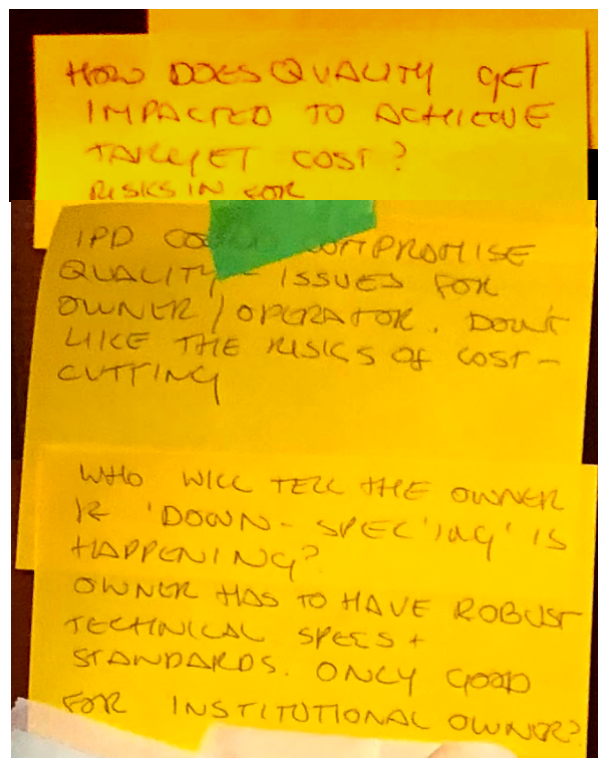 HOW DOES QUALITY GET
IMPACTED TO ACHIEVE
TARGET COST?
RISKS IN FOR
IPD COMPROMISE
QUALITY - ISSUES FOR
OWNER / OPERATOR. DON'T
LIKE THE RISKS OF COST-
CUTTING
WHO WILL TELL THE OWNER
IF 'DOWN-SPEC'ING' IS
HAPPENING?
OWNER HAS TO HAVE ROBUST
TECHNICAL SPECS +
STANDARDS. ONLY GOOD
FOR INSTITUTIONAL OWNER?